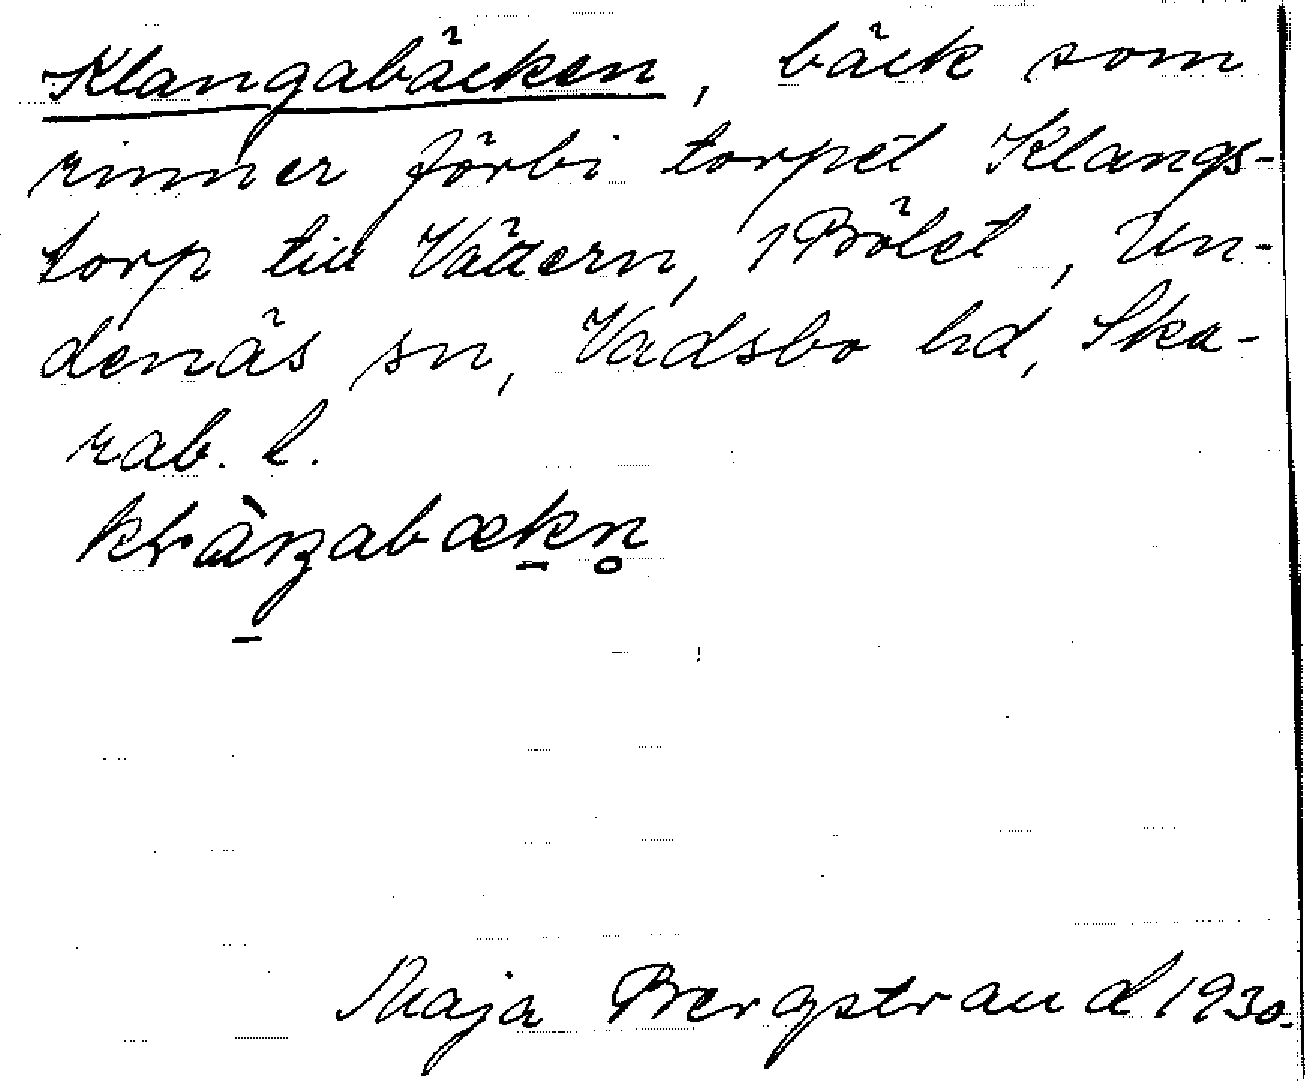 Klangabäcken, bäck som
rinner förbi torpet Klangs-
torp till Vättern, 1 Bölet, Un-
denäs sn, Vadsbo hd, Ska-
rab. l.
Maja Bergstrand 1930.